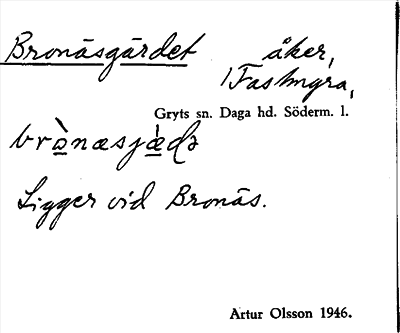 Bronäsgärdet åker,
Gryts sn. Daga hd. Söderm. l.
Ligger vid Bronäs.
Artur Olsson 1946.